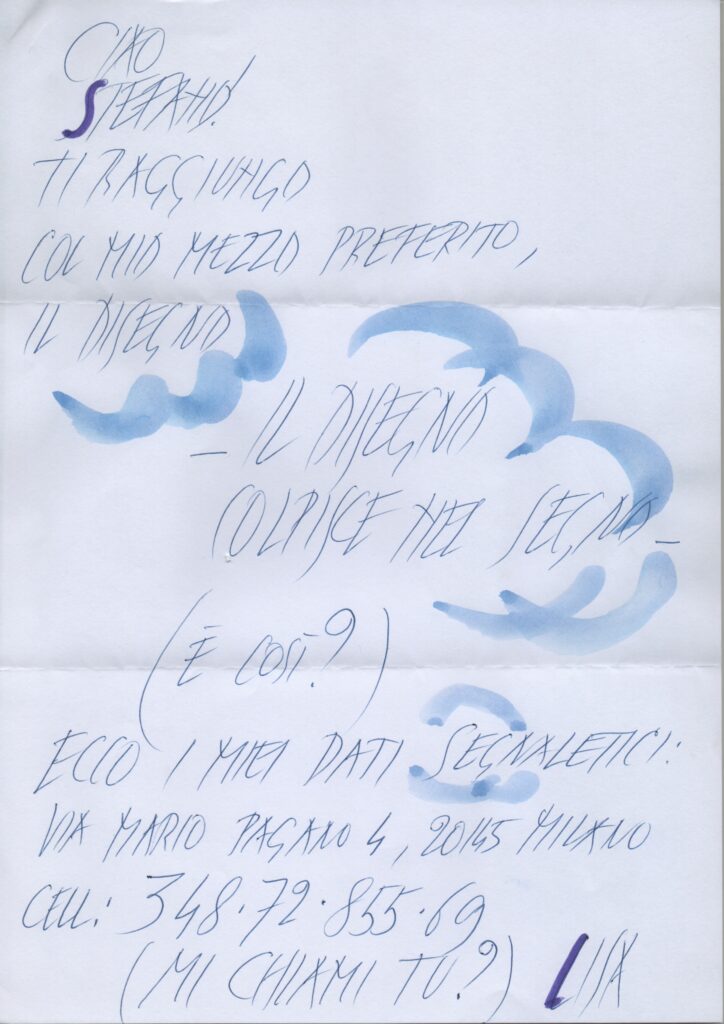 CIAO
STEFANO!
TI RAGGIUNGO
COL MIO MEZZO PREFERITO,
IL DISEGNO
— IL DISEGNO
COLPISCE NEL SEGNO —
(È COSÌ?)
ECCO I MIEI DATI SEGNALETICI:
VIA MARIO PAGANO 4, 20145 MILANO
CELL: 348·72·855·69
(MI CHIAMI TU?) LISA